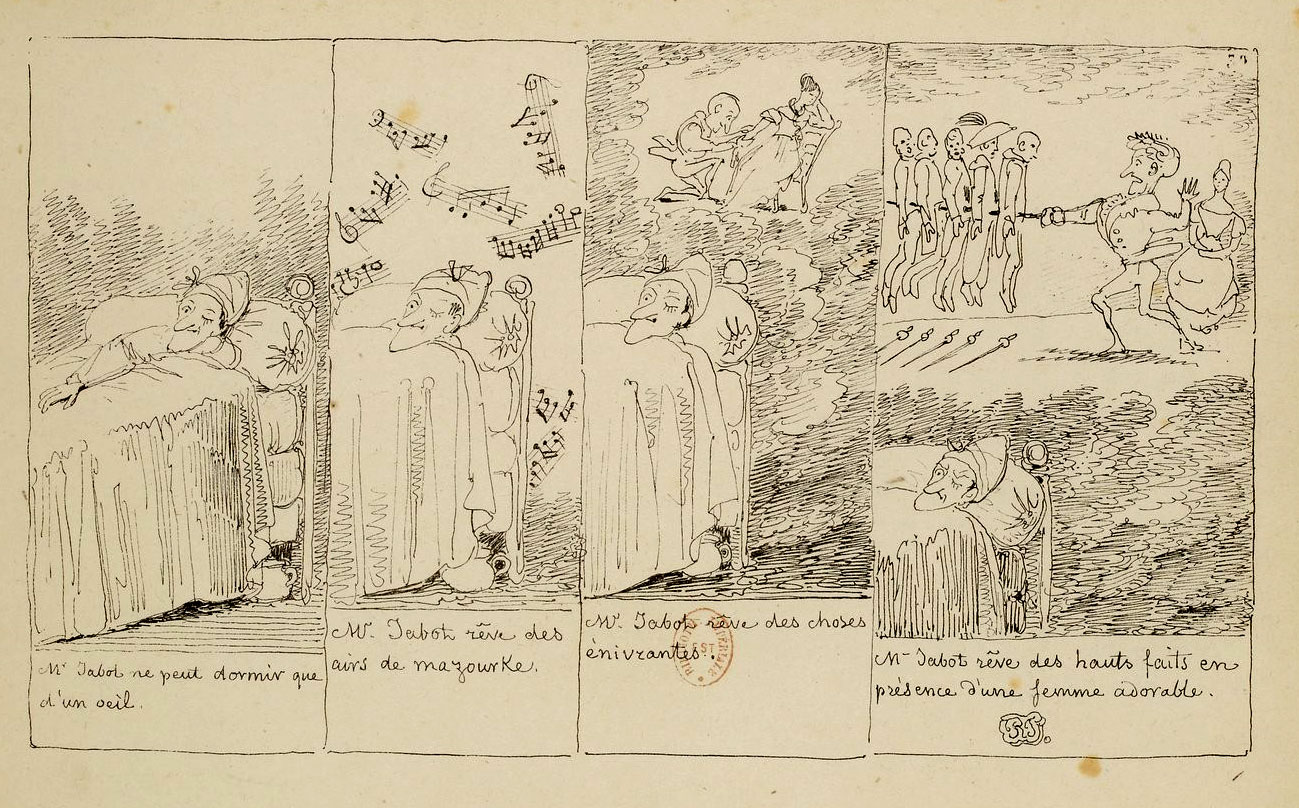 Mr Jabot ne peut dormir que
d'un oeil.
Mr. Jabot rêve des
airs de mazourke.
Mr. Jabot rêve des choses
énivrantes.
Mr Jabot rêve des hauts faits en
présence d'une femme adorable.
RT.